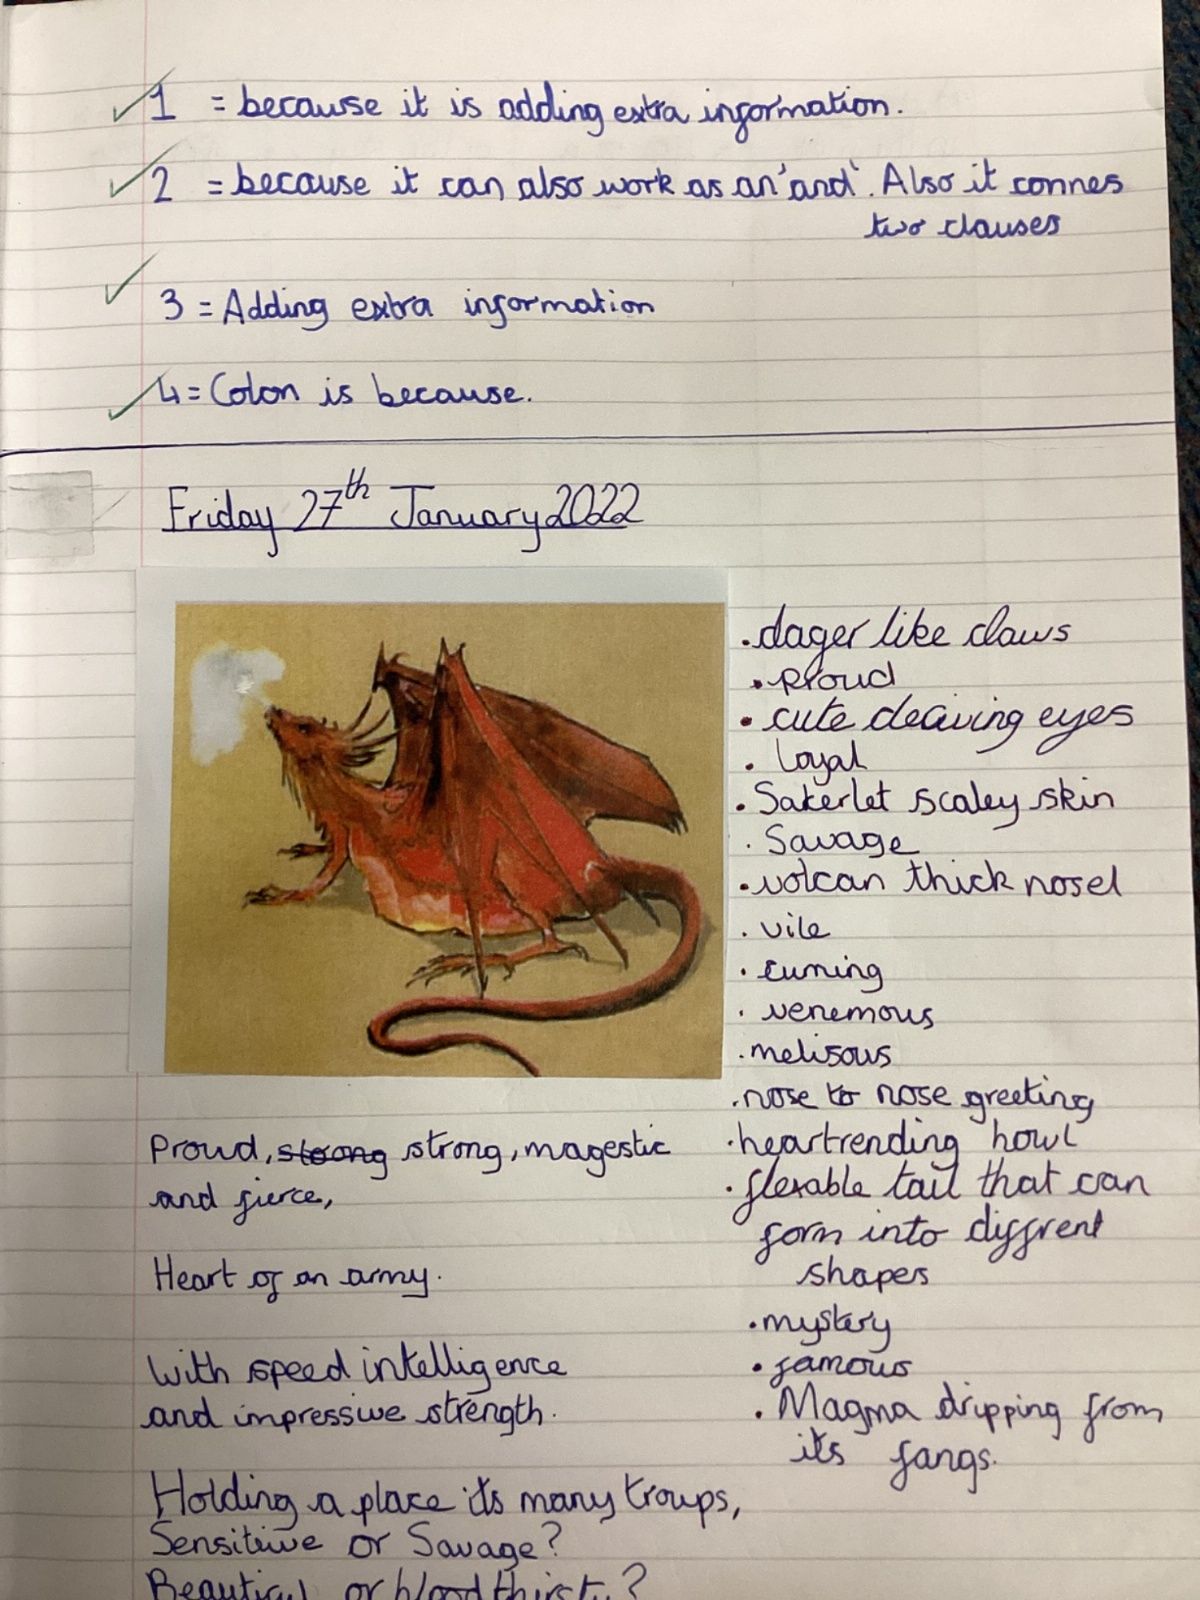 1 = because it is adding extra information.
2 = because it can also work as an 'and'. Also it connes
two clauses
3 = Adding extra information
4 = Colon is because.
Friday 27th January 2022
. dager like claws
. Proud
. cute deciving eyes
. Loyal
. Sakerlet scaley skin
. Savage
. volcan thick nosel
. vile
. cuming
. venemous
. melisous
. nose to nose greeting
. heartrending howl
. flexable tail that can
form into diffrent
shapes
. mystery
. famous
. Magma dripping from
its fangs.
Proud, stoong strong, magestic
and fierce,
Heart of an army.
With speed intelligence
and impressive strength.
Holding a place its many troups,
Sensitive or Savage?
Beautiful or bloodthirsty?